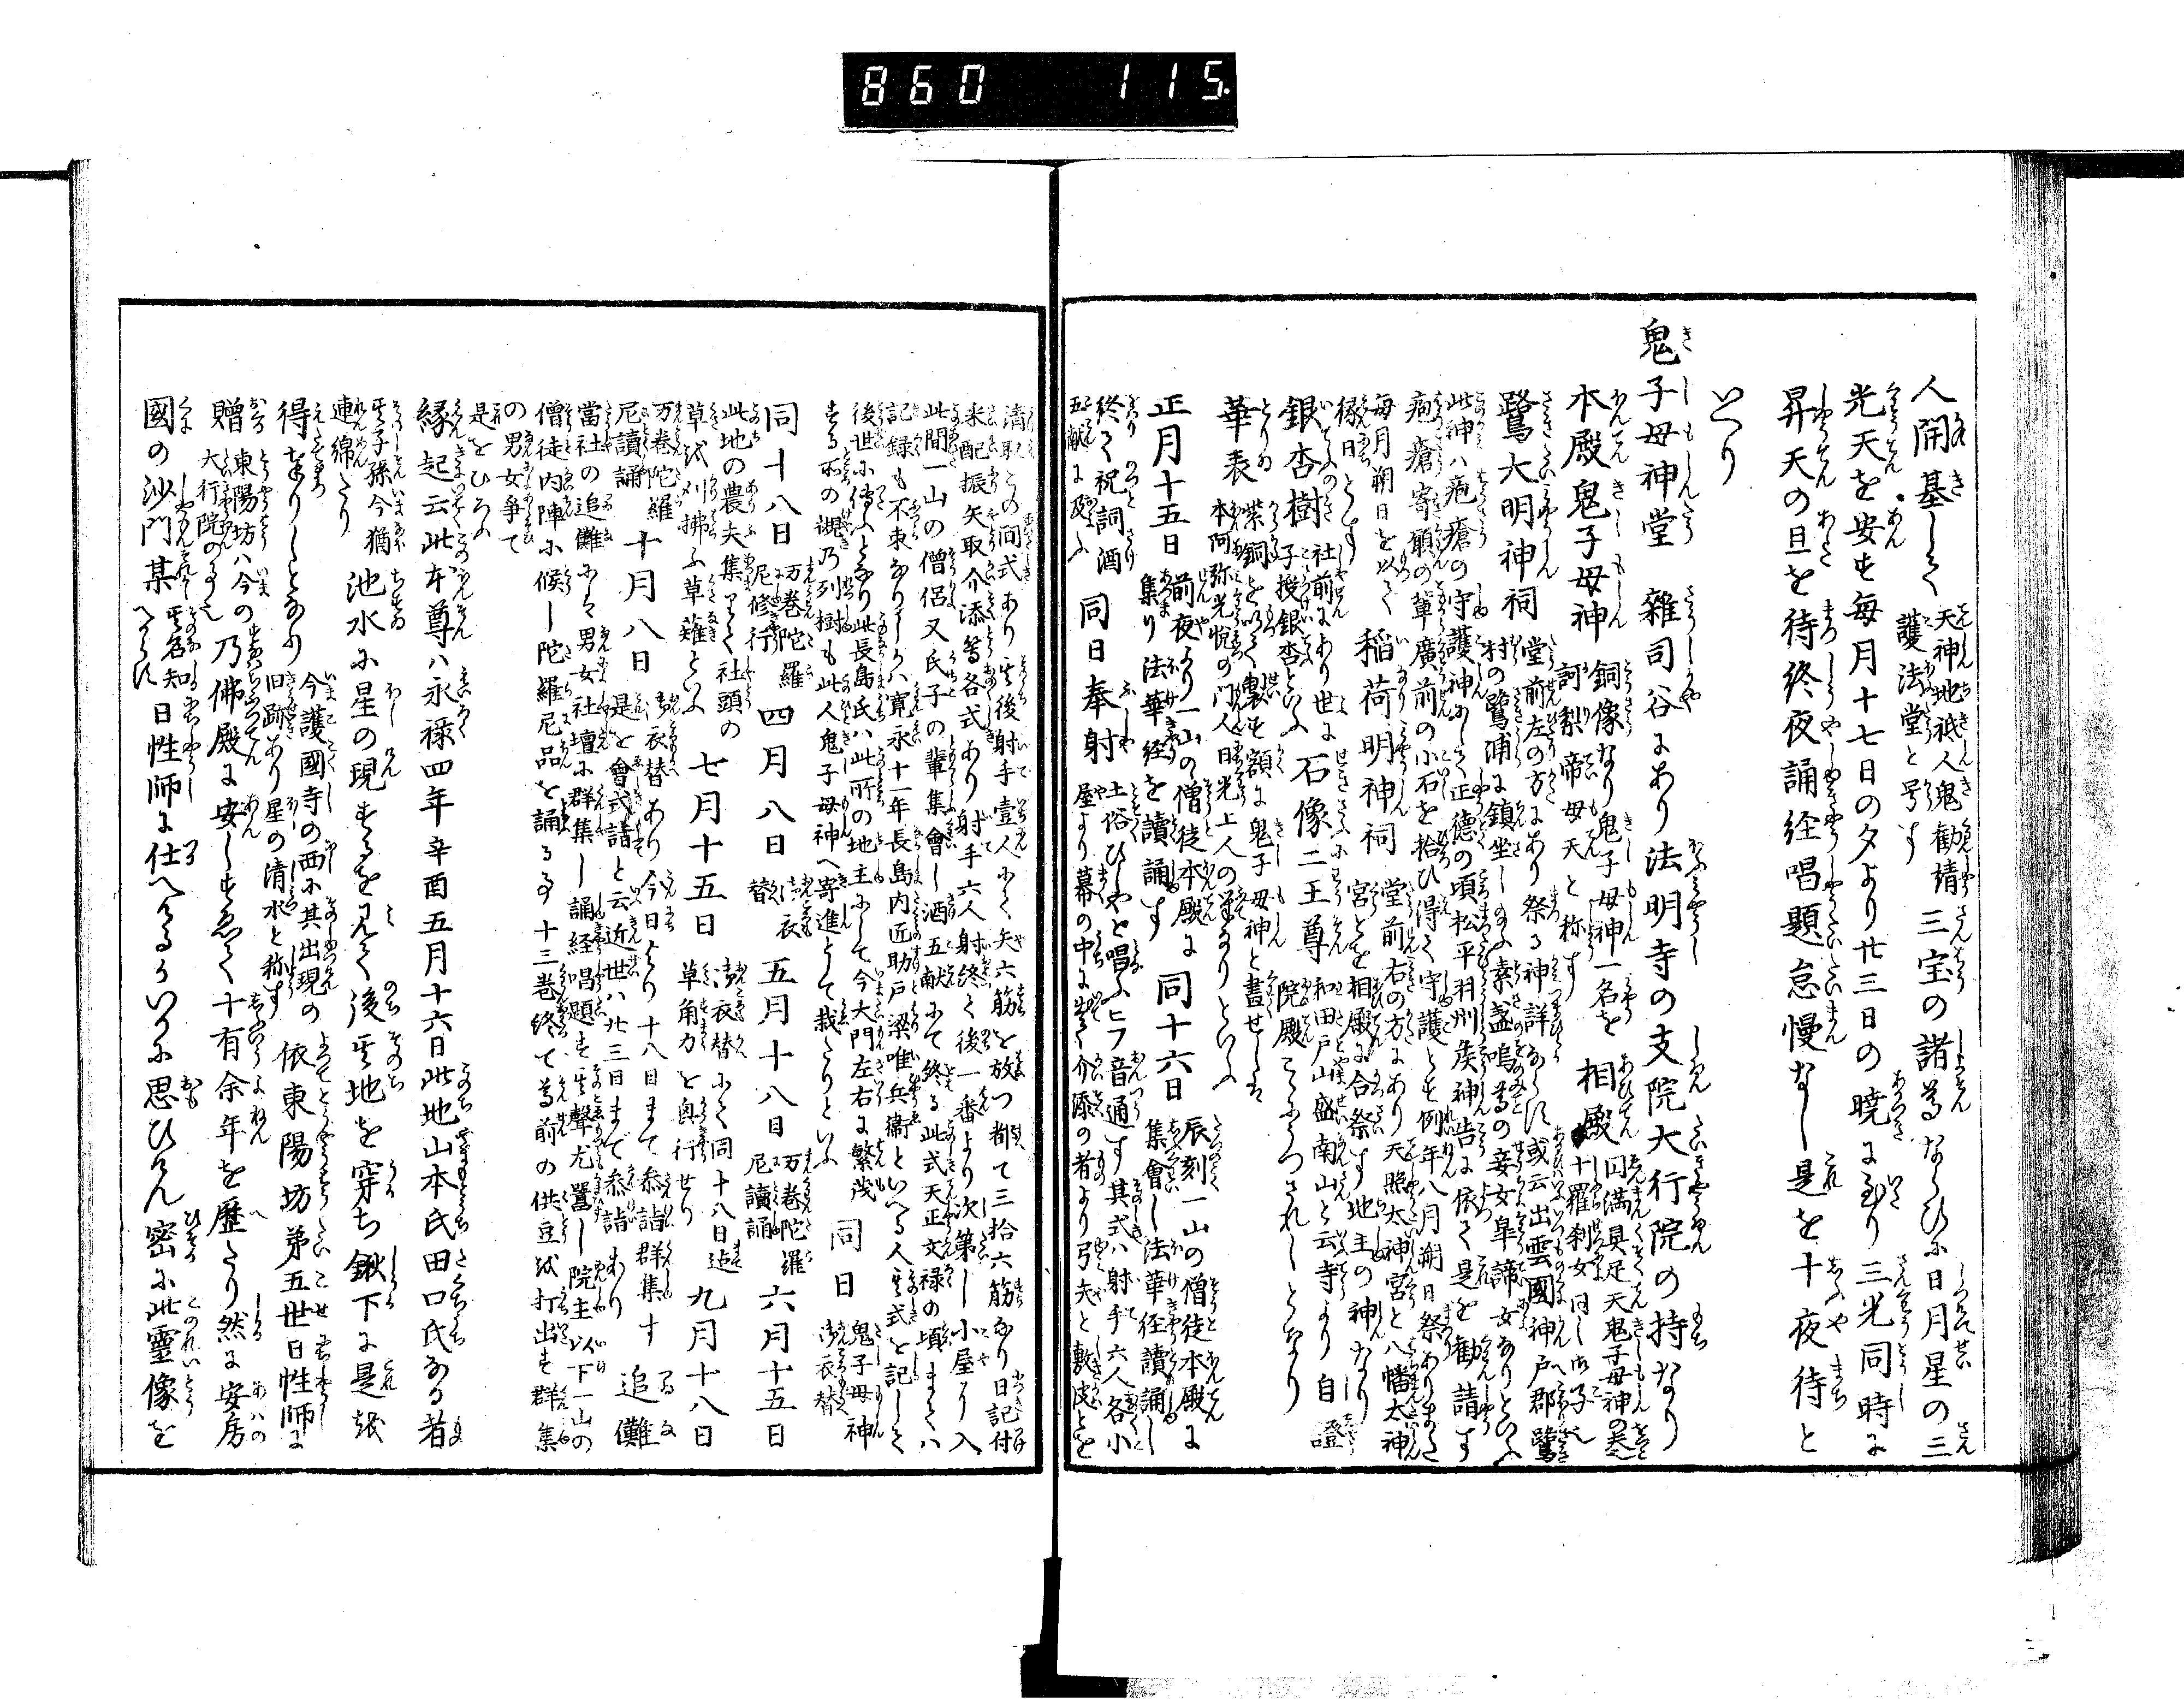 860 115.
人開基して 天神地祇人鬼勧請
護法堂と号す 三宝の諸尊ならひに日月星の三
光天を安す毎月十七日の夕より廿三日の暁に至り三光同時に
昇天の旦を待終夜誦経唱題怠慢なし是を十夜待と
いへり
鬼子母神堂 雜司谷にあり法明寺の支院大行院の持なり
本殿鬼子母神 銅像なり鬼子母神一名を
訶梨帝母天と称す 相殿 十羅刹女同し御子也
鷺大明神祠 堂前左の方にあり祭る神詳ならす或云出雲國神戸郡鷺
村の鷺浦に鎮坐し給ふ素盞嗚尊の妾女皐諦女なりといふ
此神ハ疱瘡の守護神にして正徳の頃松平羽州矦神告に依て是を勧請す
疱瘡寄願の輩廣前の小石を拾ひ得て守護とす例年八月朔日祭あり
毎月朔日を以て
縁日とす 稲荷明神祠 堂前右の方にあり天照太神宮と八幡太神
宮とを相殿に合祭す地主の神なり
銀杏樹 社前にあり世に
子授銀杏といふ 石像二王尊 和田戸山盛南山と云寺より自證
院殿こゝにうつされしとなり
華表 紫銅を以て製す額に鬼子母神と書せしは
本阿弥光悦の門人日光上人の筆なりといふ
正月十五日 前夜より一山の僧徒本殿に
集り法華経を讀誦す 同十六日 辰刻一山の僧徒本殿に
集會し法華経讀誦し
終て祝詞酒
五献に及ふ 同日奉射 土俗ひしやと唱ふヒフ音通す其式ハ射手六人各小
屋より幕の中に出て介添の者より弓矢と敷皮とを
請取この間式あり其後射手壹人にて矢六筋を放つ都て三拾六筋なり日記付
釆配振矢取介添等各式あり射手六人射終て後一番より次第し小屋に入
此間一山の僧侶又氏子の輩集會し酒五献にて終る此式天正文禄の頃まてハ
記録も不束なりしか寛永十一年長島内匠助戸梁唯兵衛といへる人其式を記して
後世に傳ふとなり此長島氏ハ此所の地主にして今大門左右に繁茂
する所の槻乃列樹も此人鬼子母神へ寄進として栽たりといふ 同日 鬼子母神
御衣替
同十八日 万巻陀羅
尼修行 四月八日 御衣
替 五月十八日 万巻陀羅
尼讀誦 六月十五日
此地の農夫集りて社頭の
草を刈拂ふ草薙といふ 七月十五日 御衣替にて同十八日迄
草角力を興行せり 九月十八日
万巻陀羅
尼讀誦 十月八日 御衣替あり今日より十八日まて参詣群集す
是を會式詣と云近世ハ廿三日まて参詣あり 追儺
當社の追儺にハ男女社壇に群集し誦経唱題す其聲尤囂し院主以下一山の
僧徒内陣に候し陀羅尼品を誦る事十三巻終て尊前の供豆を打出す群集
の男女争て
是をひろふ
縁起云此本尊ハ永禄四年辛酉五月十六日此地山本氏田口氏なる者
其子孫今猶
連綿たり 池水に星の現するを見て後其地を穿ち鍬下に是を
得奉りしとなり 今護國寺の西に其出現の
旧跡あり星の清水と称す 依東陽坊第五世日性師に
贈 東陽坊ハ今の
大行院の事也 乃佛殿に安し置て十有余年を歴たり然に安房
國の沙門某 其名知
へからす 日性師に仕へけるかいかに思ひけん密に此靈像を